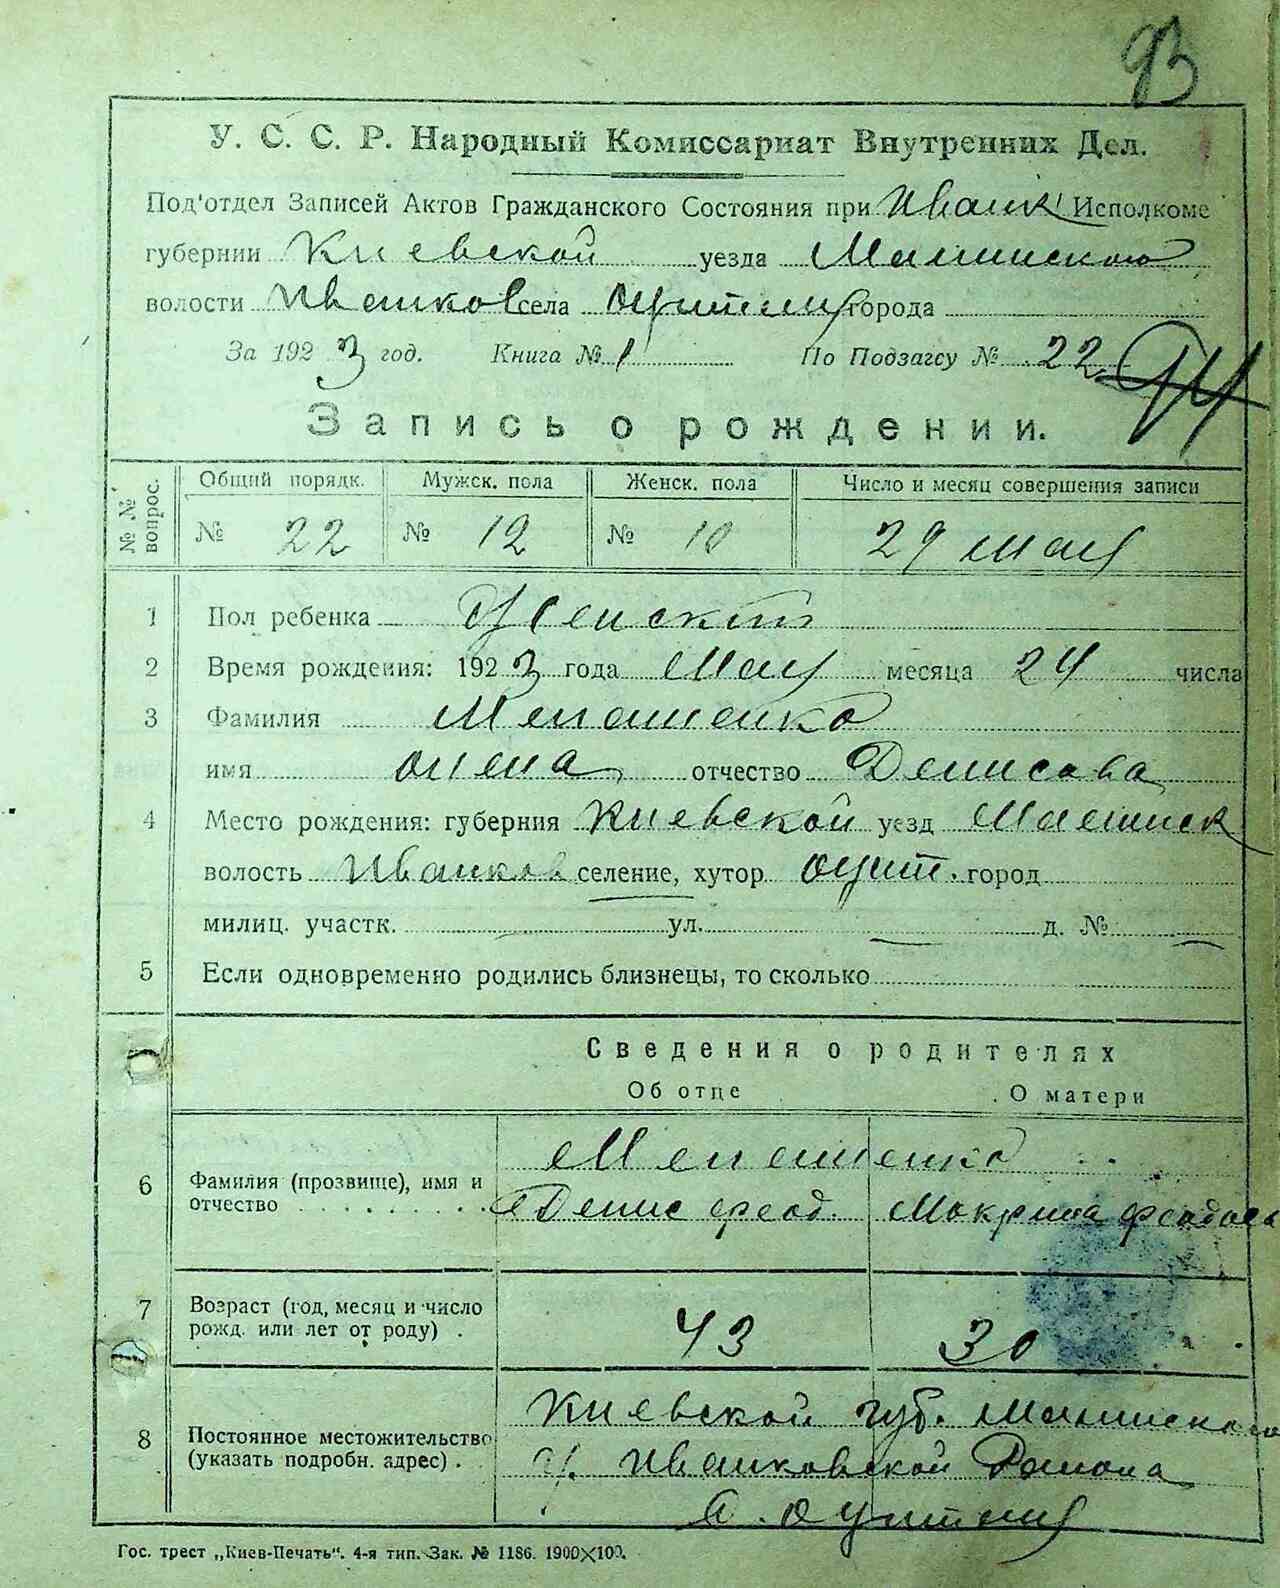 93
У. С. С. Р. Народный Комиссариат Внутренних Дел.
Под'отдел Записей Актов Гражданского Состояния при Иванк Исполкоме
губернии Киевской уезда Малинского
волости Иванков села города
За 1923 год. Книга № 1 По Подзагсу № 22
Запись о рождении.
№ № вопрос. Общий порядк. Мужск. пола Женск. пола Число и месяц совершения записи
№ 22 № 12 № 10 29 мая
1 Пол ребенка Женский
2 Время рождения: 1923 года Мая месяца 24 числа
3 Фамилия Менашенко
имя Олена отчество Денисова
4 Место рождения: губерния Киевской уезд Малинск
волость Иванков селение, хутор город
милиц. участк. ул. д. №
5 Если одновременно родились близнецы, то сколько
Сведения о родителях
Об отце О матери
Менашенко
6 Фамилия (прозвище), имя и
отчество Денис Феод. Мокрина Феодось
7 Возраст (год, месяц и число
рожд. или лет от роду) . 43 30
Киевской губ. Малинского
8 Постоянное местожительство
(указать подробн. адрес) . у. Иванковской Района
с.
Гос. трест „Киев-Печать“. 4-я тип. Зак. № 1186. 1900×100.